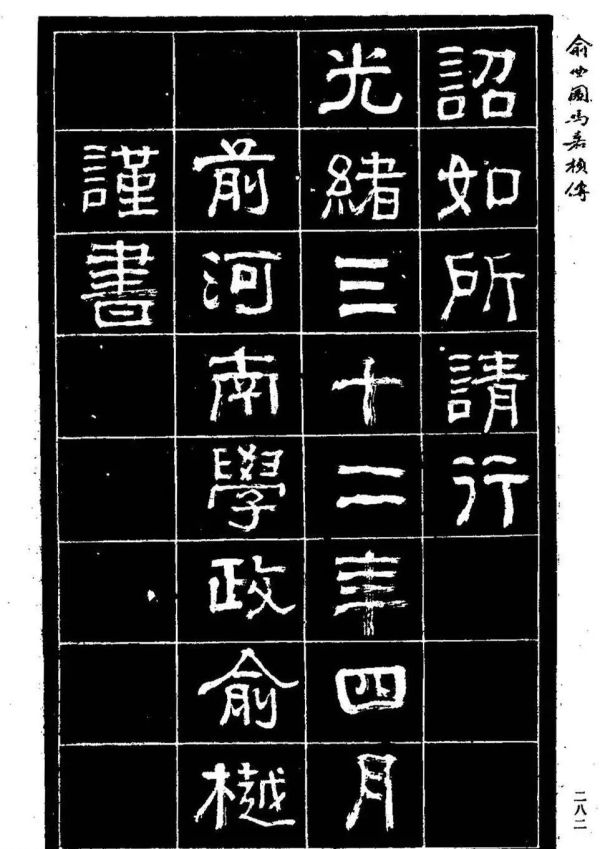 俞曲園馮嘉楨傳
詔如所請行
光緒三十二年四月
前河南學政俞樾
謹書
二八二